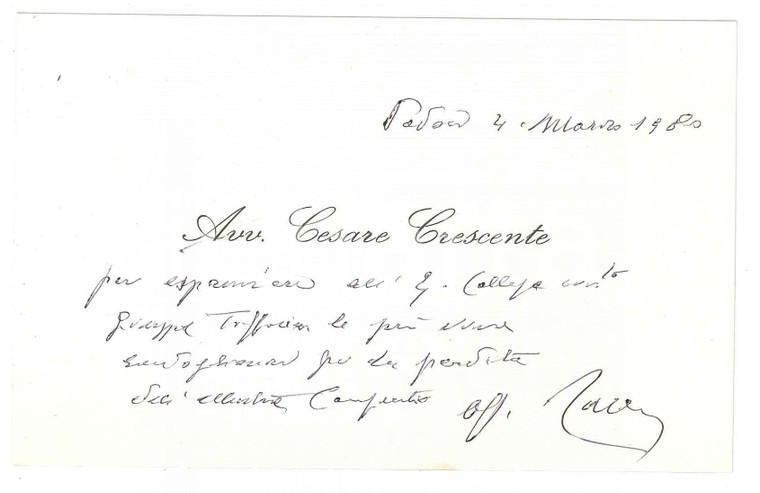 Padova 4 Marzo 1980
Avv. Cesare Crescente
per esprimere all' Collega
Giuseppe le più vive
condoglianze per la perdita
dell'illustre Congiunto aff.